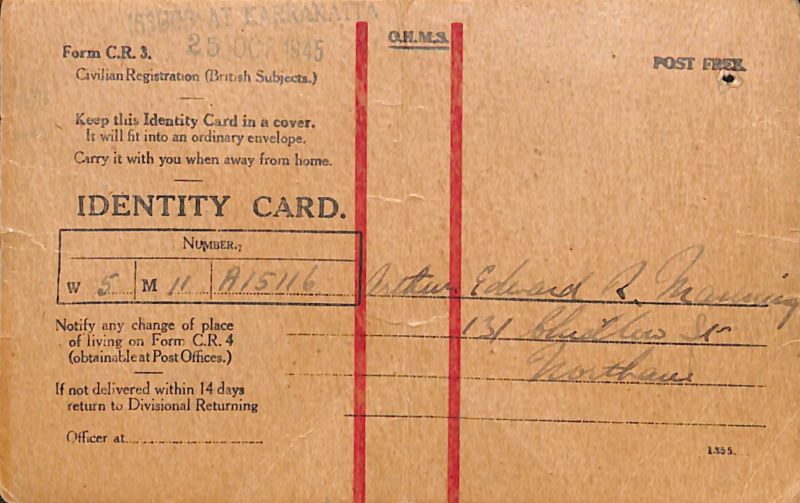 ISSUED AT KARRAKATTA
25 OCT 1945
O.H.M.S.
Form C.R. 3.
Civilian Registration (British Subjects.)
POST FREE.
Keep this Identity Card in a cover.
It will fit into an ordinary envelope.
Carry it with you when away from home.
IDENTITY CARD.
NUMBER.
W 5 M 11 A15116
Arthur Edward R. Manning
131 Chidlow St
Northam
Notify any change of place
of living on Form C.R. 4
(obtainable at Post Offices.)
If not delivered within 14 days
return to Divisional Returning
Officer at
1355.